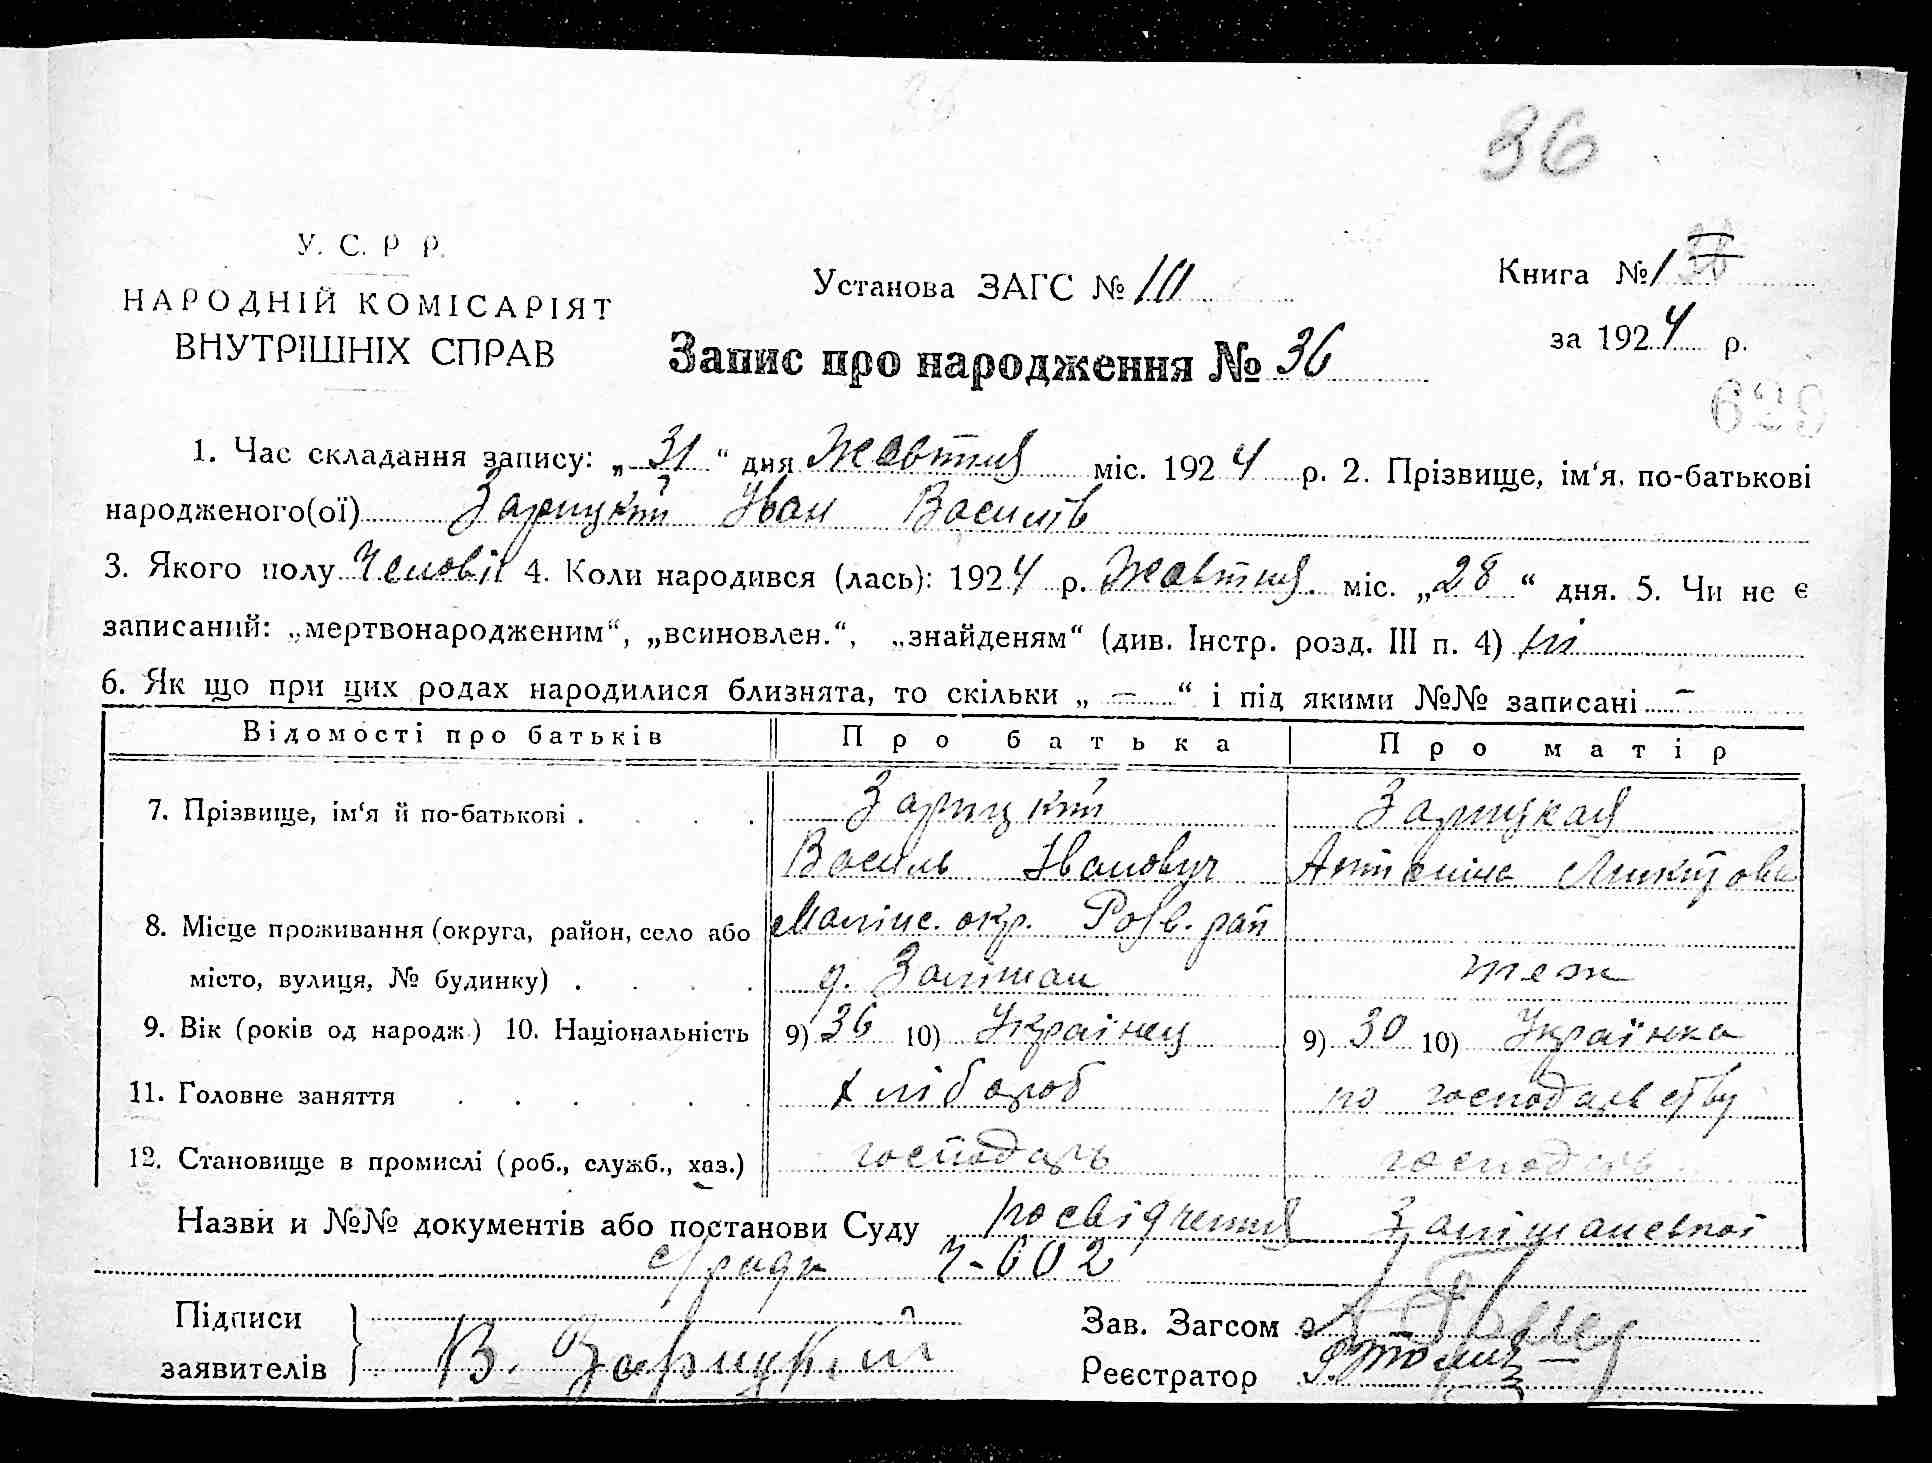 36
У. С. Р Р.
НАРОДНІЙ КОМІСАРІЯТ
ВНУТРІШНІХ СПРАВ
Установа ЗАГС №
Книга № 1
за 1924 р.
Запис про народження № 36
629
1. Час складання запису: „ 31 “ дня Жовтня міс. 1924 р. 2. Прізвище, ім‘я, по-батькові
народженого(ої) Зарицкій Іван Василів
3. Якого полу Чоловіч 4. Коли народився (лась): 1924 р. Жовтня. міс. „28“ дня. 5. Чи не є
записаний: „мертвонародженим“, „всиновлен.“, „знайденям“ (див. Інстр. розд. III п. 4) ні
6. Як що при цих родах народилися близнята, то скільки „ — “ і під якими №№ записані —
Відомості про батьків Про батька Про матір
7. Прізвище, ім‘я й по-батькові . . . . Зарицкій Зарицкая
Василь Івановуч Антоніна Микитовн
8. Місце проживання (округа, район, село або Малинс. окр. Розв. рай
місто, вулиця, № будинку) . . . . Залішан теж
9. Вік (років од народж.) 10. Національність 9) 36 10) Українец 9) 30 10) Українка
11. Головне заняття . . . . . . хлібороб по господарству
12. Становище в промислі (роб., служб., хаз.) господарь господарь
Назви и №№ документів або постанови Суду посвідчення Залішанської
с/ради Ч-602
Підписи
заявителів В. Зарицкій
Зав. Загсом
Реєстратор